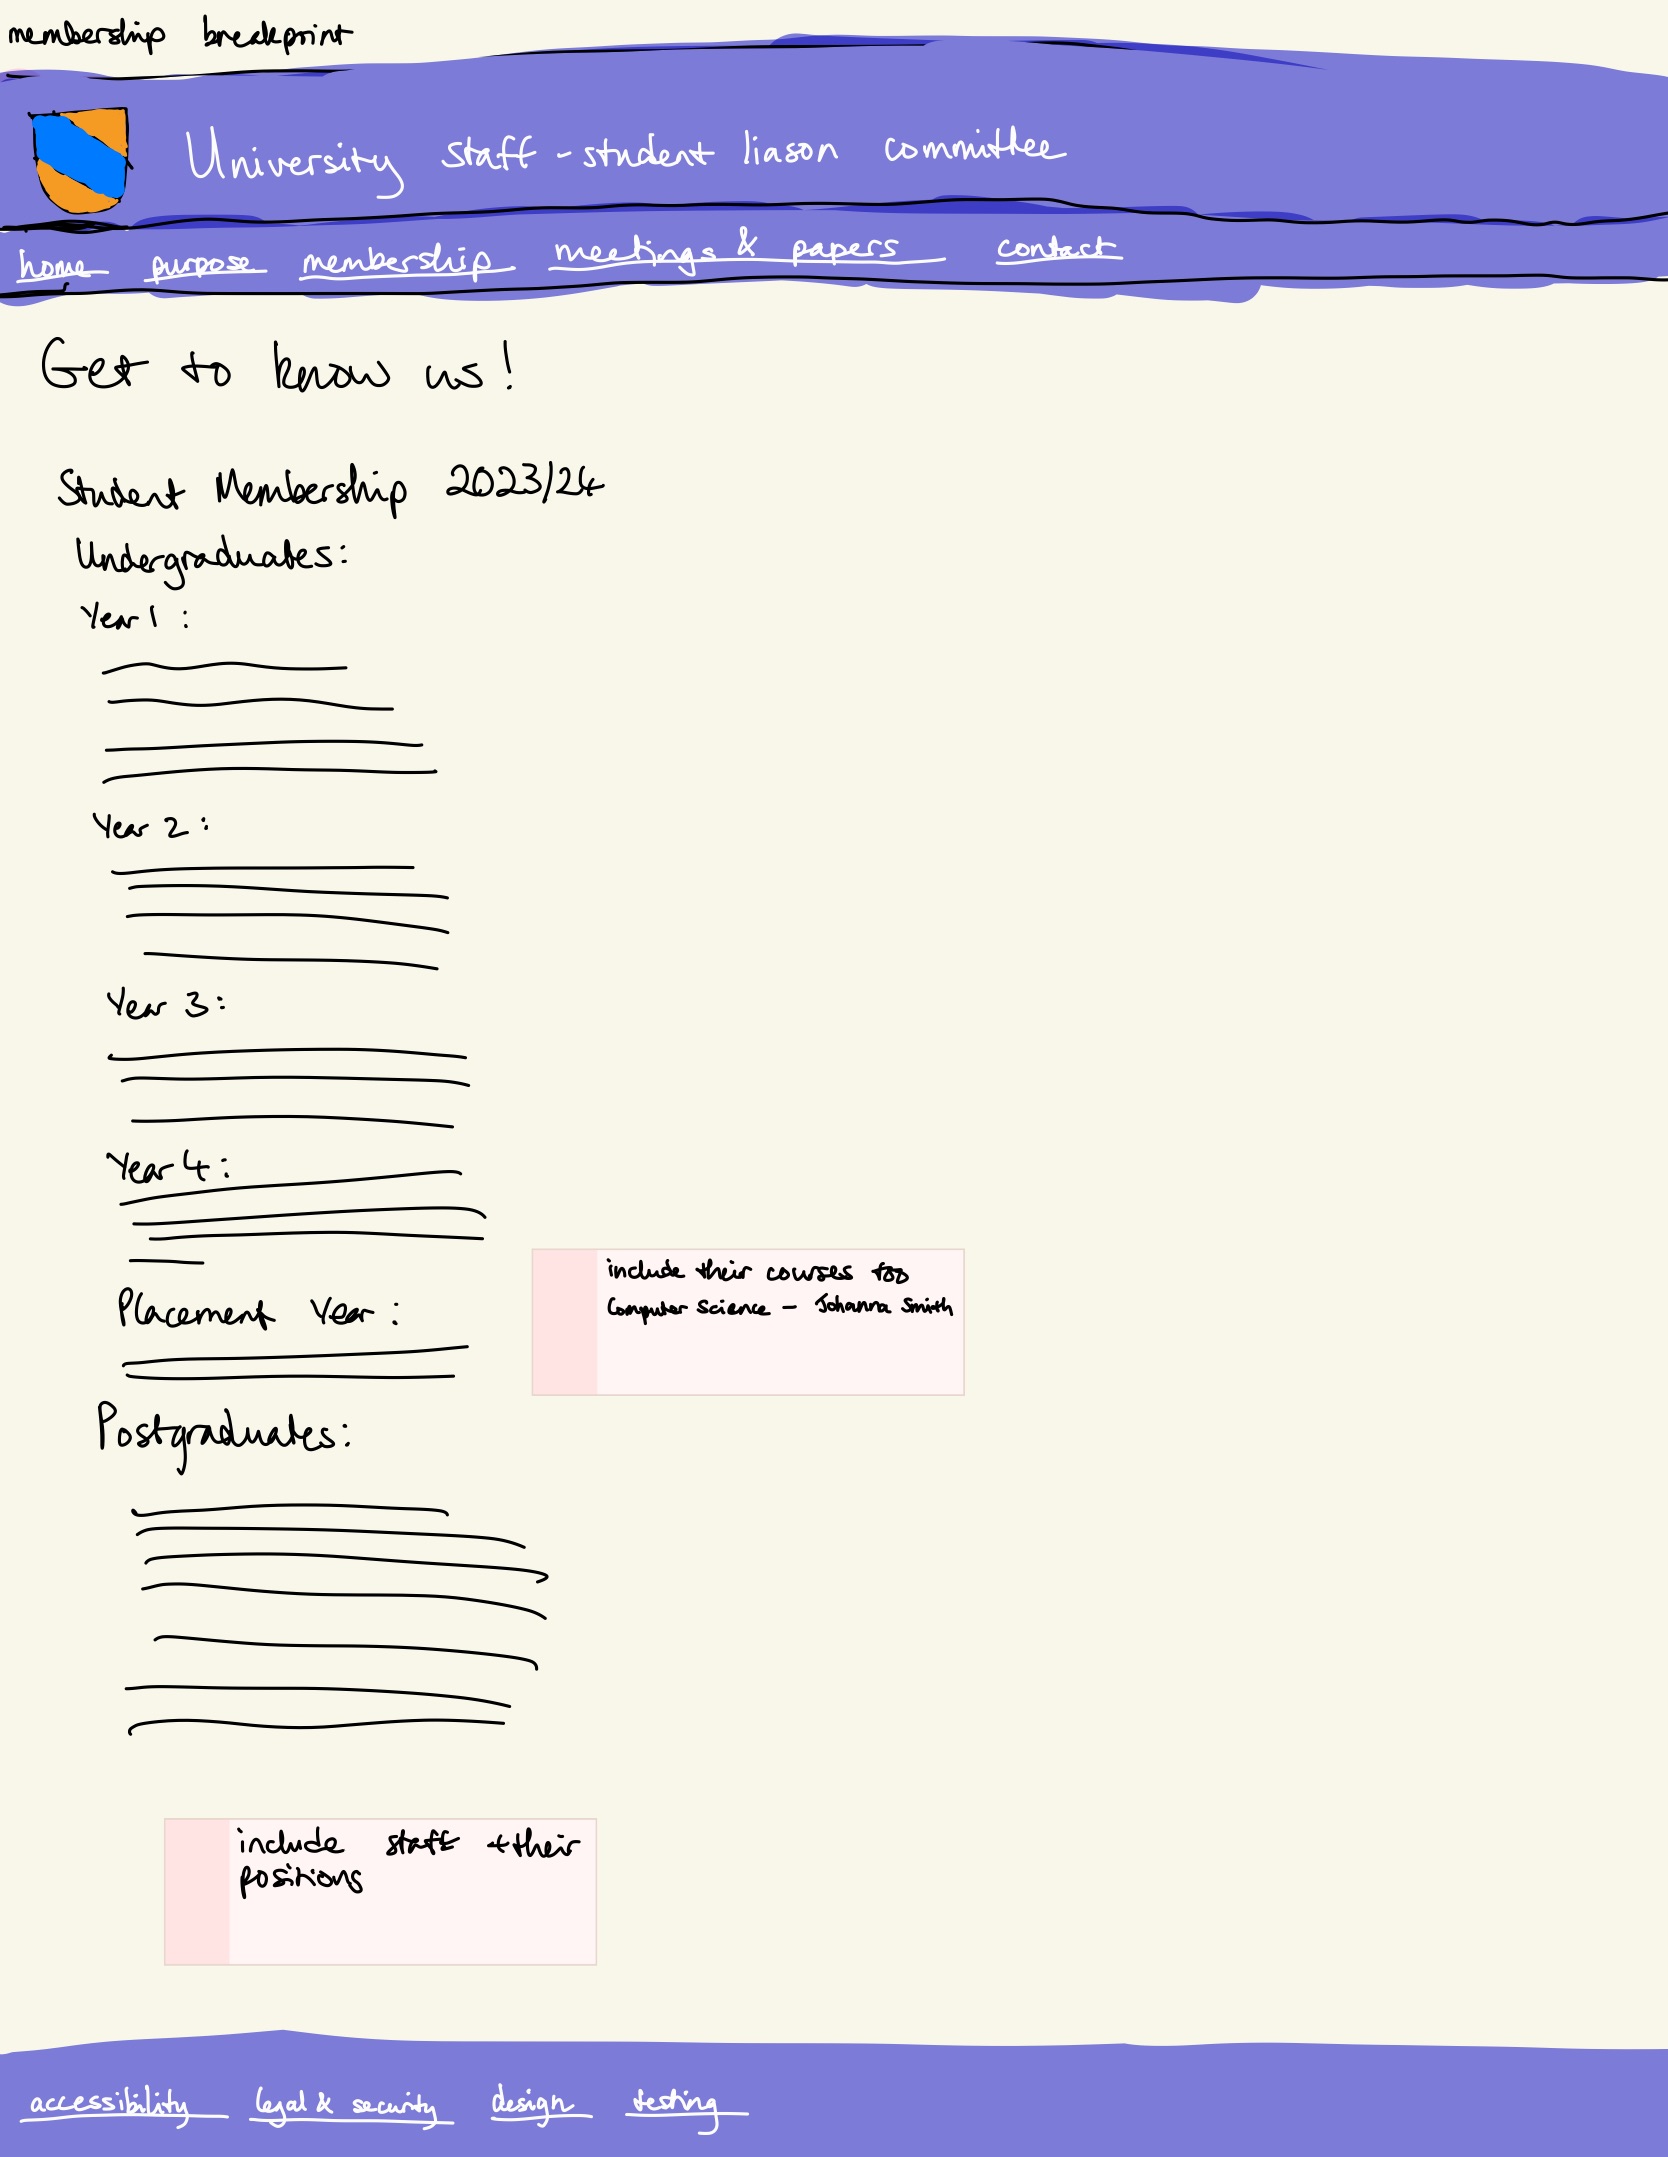 membership breakpoint
University staff-student liason committee
home purpose membership meetings & papers contact
Get to know us!
Student Membership 2023/24
Undergraduates:
Year 1 :
Year 2 :
Year 3 :
Year 4 :
include their courses too
Computer Science - Johanna Smith
Placement Year :
Postgraduates:
include staff + their
positions
accessibility legal & security design testing